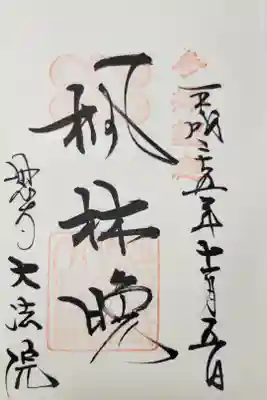 平成二十五年十一月五日
楓林晩
大法院